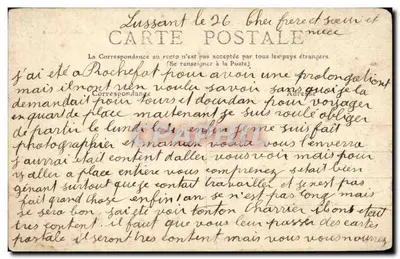 Lussant le 26 Cher frere et sœur et
niece
CARTE POSTALE
La Correspondance au recto n'est pas acceptée par tous les pays étrangers.
(Se renseigner à la Poste)
j'ai été a Rochefot pour avoir une prolongation
mais il nont rien vouler savoir sans quoi je la
Correspondance
demandait pour tours et dourdan pour voyager
en quard de place maintenant je suis roulé obliger
de partir le lundi enfin je me suis fait
photographier et maman vous l'enverra
j'aurrai était content daller vous voir mais pour
y aller a place entière vous comprenez setait bien
gênant surtout que je contait travailler et se nest pas
fait grand chose enfin 1 an se n'est pas long mais
je sero bon, jai eté voir tonton Charrier ils ont était
tres content. il faut que vous leur passer des cartes
postale il seront tres content mais vous vous nourrez